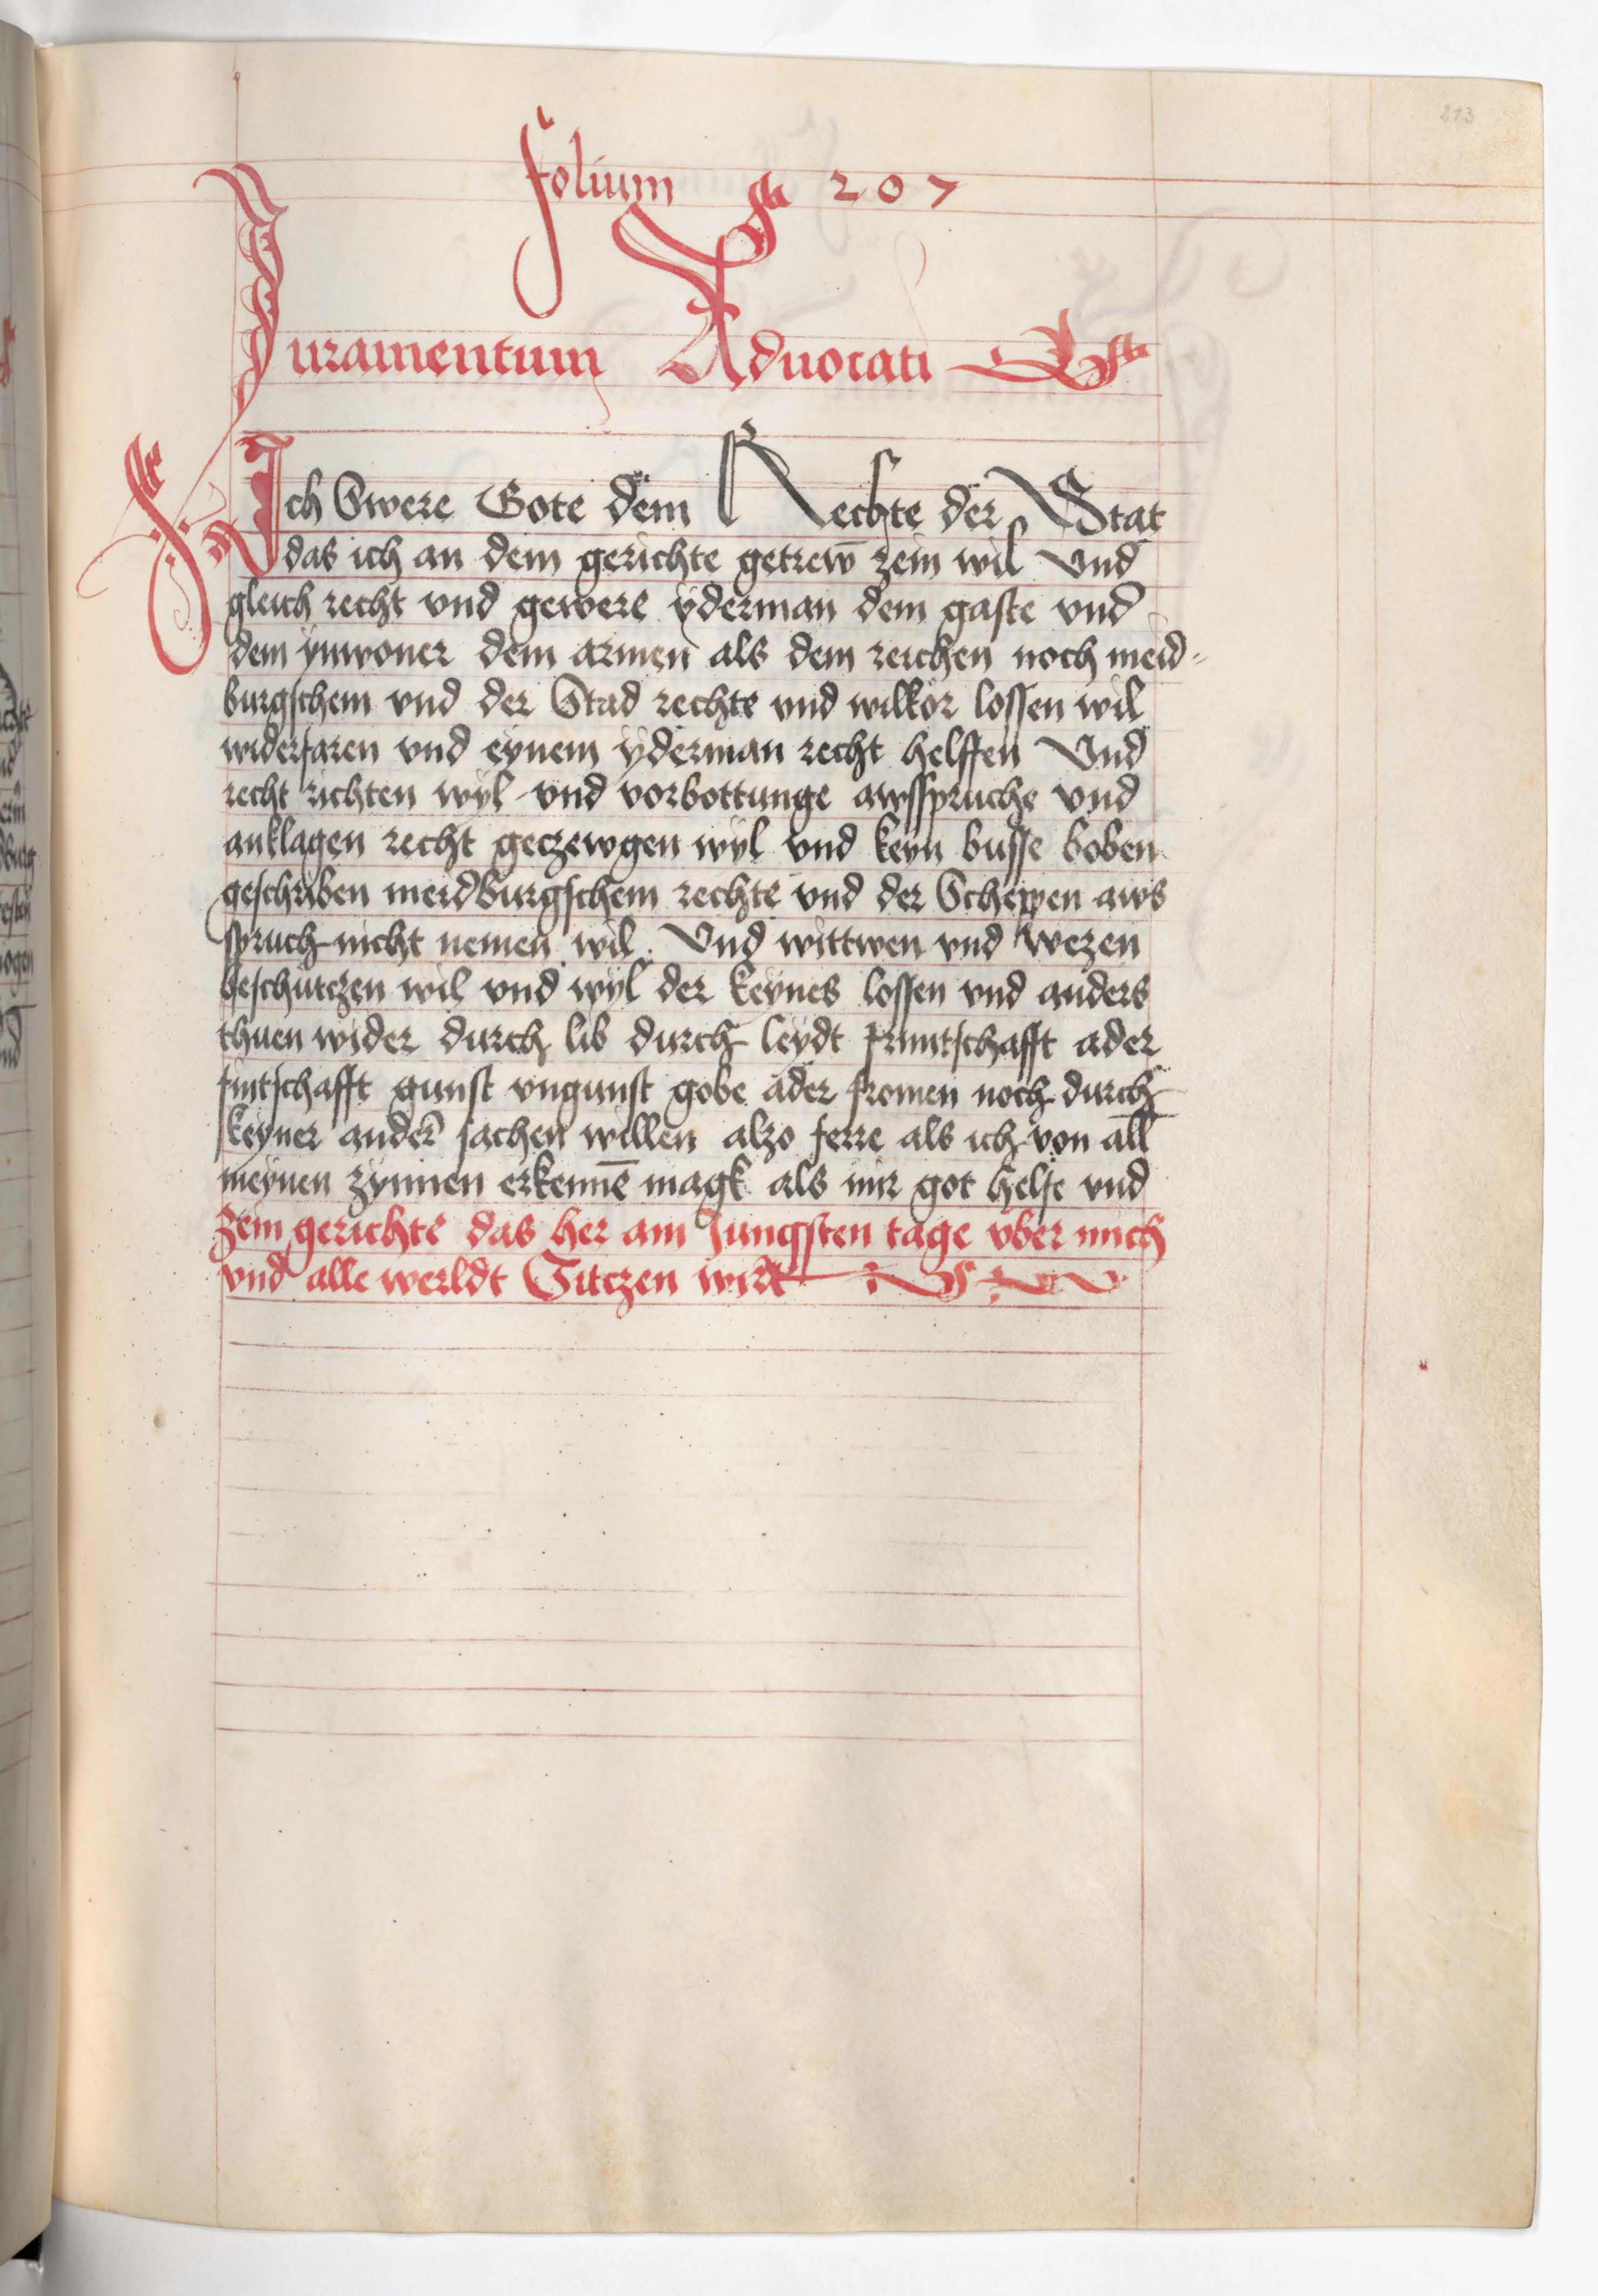 213
folium 207
Juramentum Aduocati
Ich Swere Gote dem Rechte der Stat
das ich an dem gerichte getrew̄ zein wil Vnd
gleich recht vnd gewere yderman dem gaste vnd
dem ynwoner dem armen als dem reichen noch meid=
burgschem vnd der Stad rechte vnd wilkor lossen wil
widerfaren vnd eynem yderman recht helffen Vnd
recht richten wyl vnd vorbottunge awsspruche vnd
anklagen recht geczewgen wyl vnd keyn busse boben
geschriben meidburgschem rechte vnd der Scheppen aws
spruch nicht nemen wil. Vnd wittwen vnd wezen
beschutczen wil vnd wyl der keynes lossen vnd anders
thuen wider durch lib durch leydt fruntschafft ader
fintschafft gunst vngunst gobe ader fromen noch durch
keyner ander̄ sachen willen alzo ferre als ich von all
meynen zynnen erkenne̅ magk als mir got helfe vnd
zein gerichte das her am Jungsten tage vber mich
vnd alle werldt Sitczen wirt